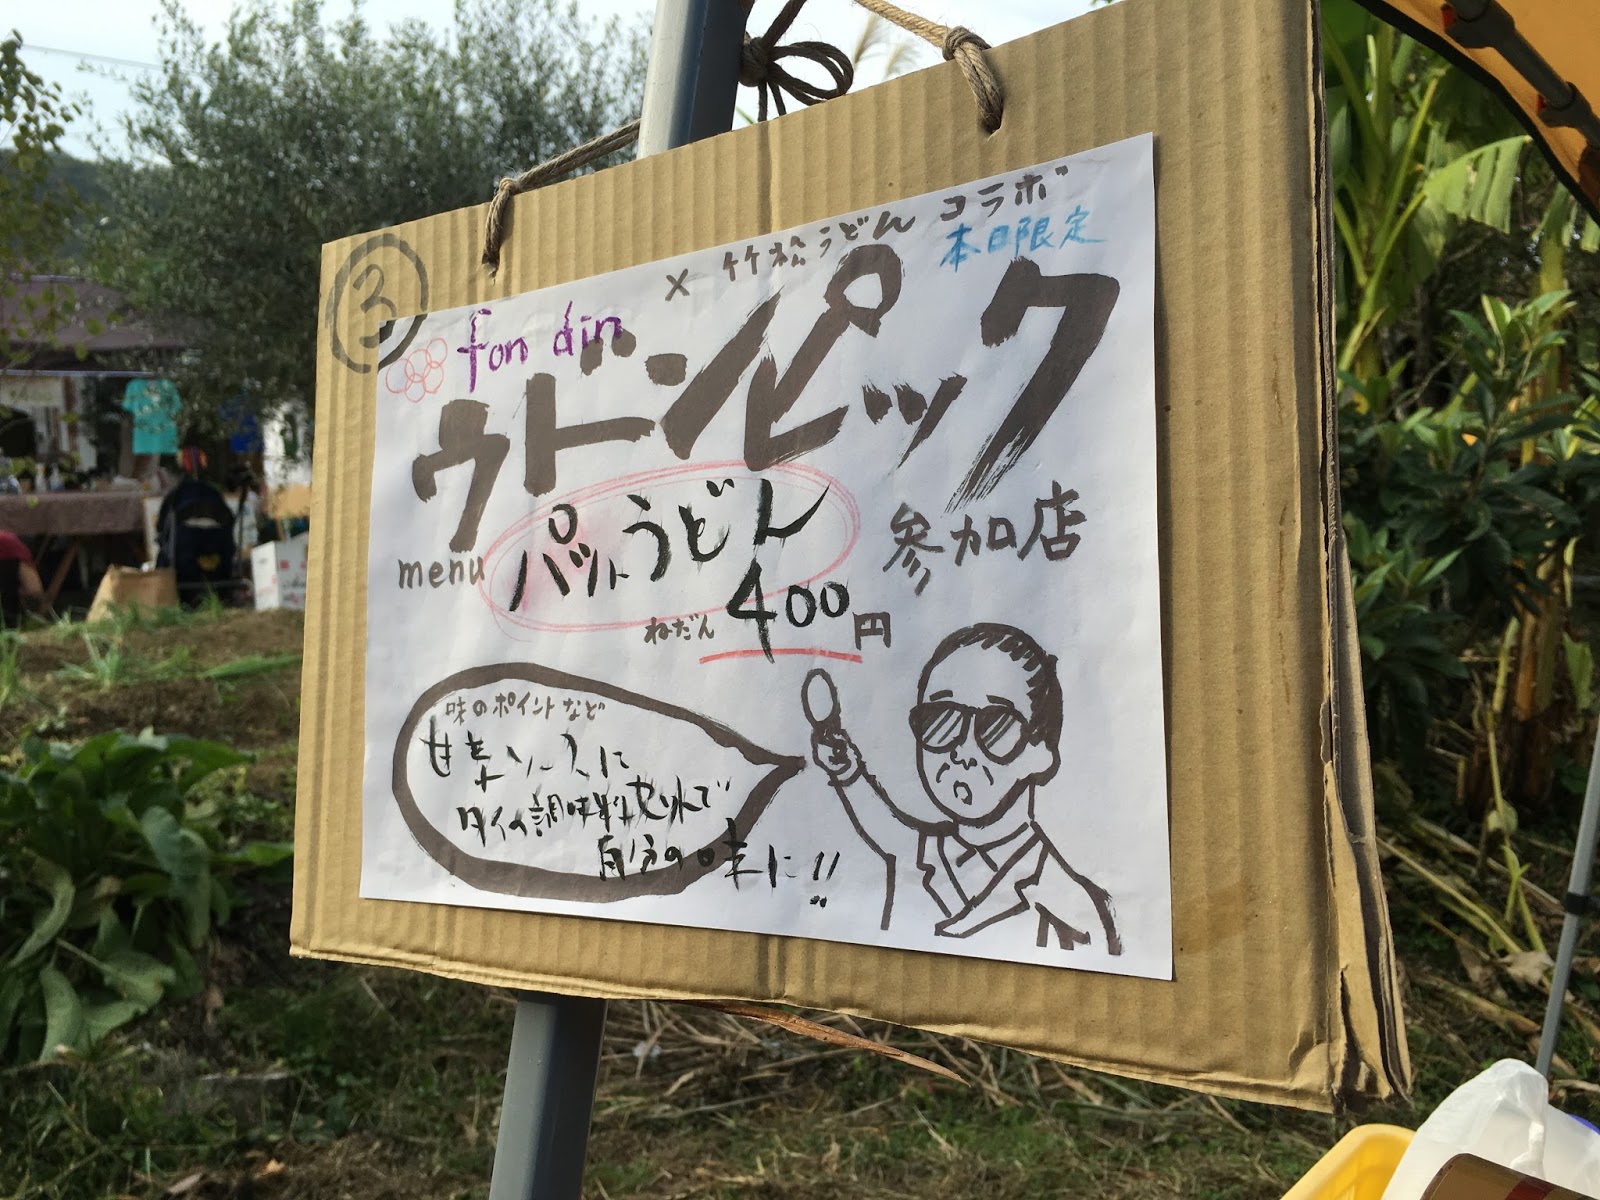 ③
× 竹松うどん コラボ
本日限定
fon din
ウドンピック
参加店
menu パッうどん
ねだん 400円
味のポイントなど
甘辛ソースに
タイの調味料4種がんで
自分の味に!!